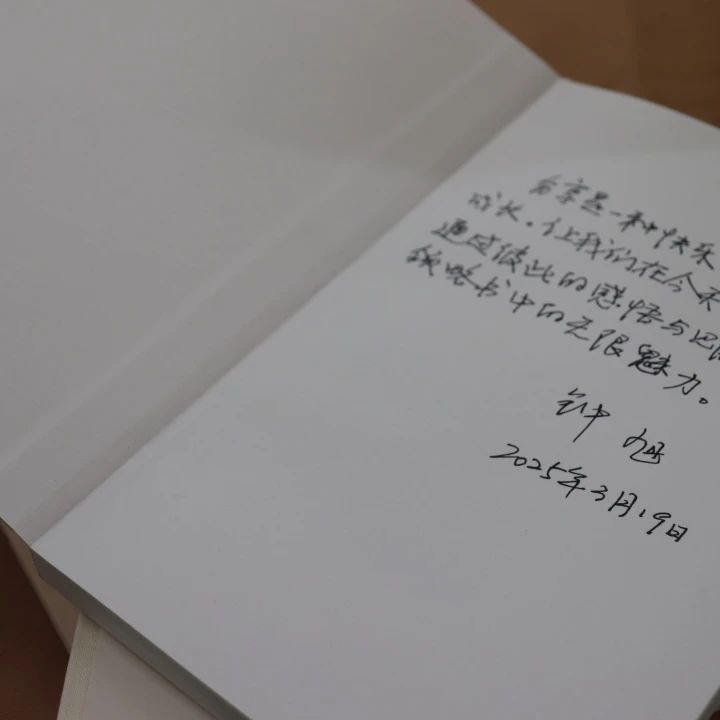 分享是一种快乐
成长。让我们在今天
通过彼此的感悟与
领略书中的无限魅力。
钟旭
2025年3月19日